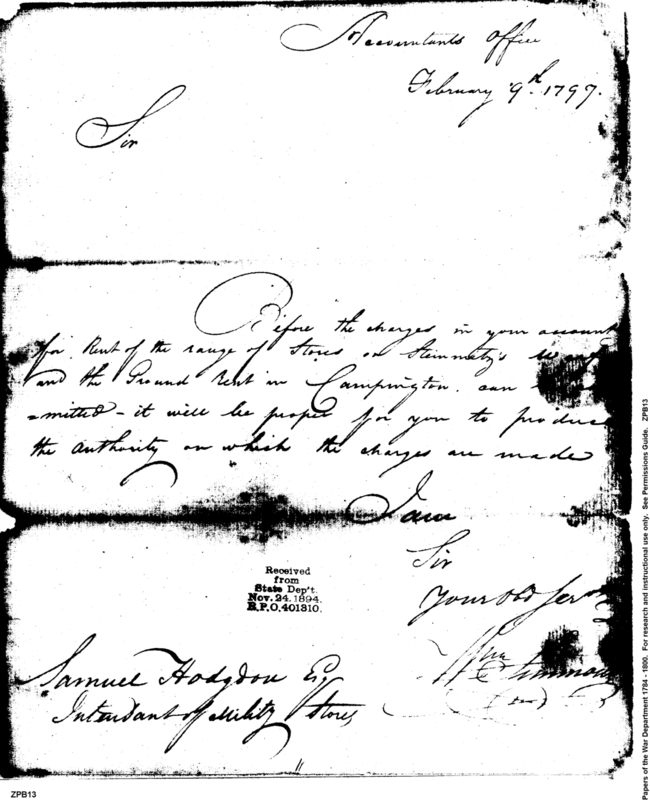 Accountants Office
February 9th 1797.
Sir
Before the charges in your account
for Rent of the range of Stores on Steinmetz's
and the Ground Rent in Campington. can
=mitted - it will be proper for you to produce
the authority on which the charges are made
I am
Sir
Your Obd Ser
Wm Simmons
Received
from
State Dep't.
Nov. 24. 1894.
R.P.O. 401310.
Samuel Hodgdon Esq
Intendant of Mility Stores
ZPB13
Papers of the War Department 1784 - 1800. For research and instructional use only. See Permissions Guide. ZPB13